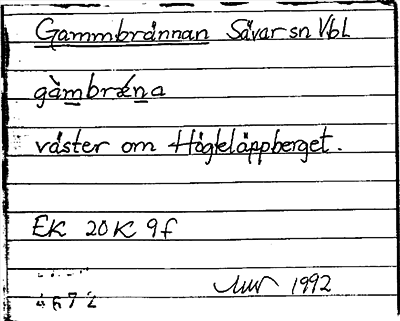 Gammbrännan Sävar sn Vbl
gàmbrǽna
väster om Högkläppberget.
EK 20K 9f
1992
4672